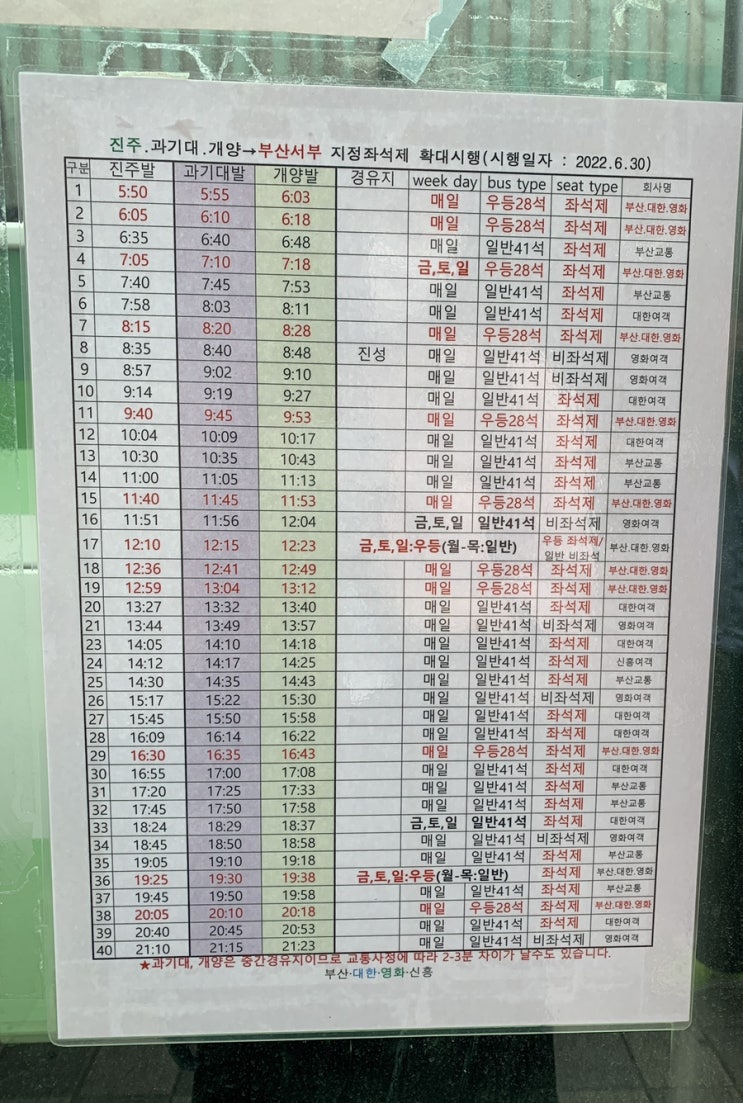 진주.과기대.개양→부산서부 지정좌석제 확대시행(시행일자 : 2022.6.30)
구분 진주발 과기대발 개양발 경유지 week day bus type seat type 회사명
1 5:50 5:55 6:03 매일 우등28석 좌석제 부산.대한.영화
2 6:05 6:10 6:18 매일 우등28석 좌석제 부산.대한.영화
3 6:35 6:40 6:48 매일 일반41석 좌석제 부산교통
4 7:05 7:10 7:18 금,토,일 우등28석 좌석제 부산.대한.영화
5 7:40 7:45 7:53 매일 일반41석 좌석제 부산교통
6 7:58 8:03 8:11 매일 일반41석 좌석제 대한여객
7 8:15 8:20 8:28 매일 우등28석 좌석제 부산.대한.영화
8 8:35 8:40 8:48 진성 매일 일반41석 비좌석제 영화여객
9 8:57 9:02 9:10 매일 일반41석 비좌석제 영화여객
10 9:14 9:19 9:27 매일 일반41석 좌석제 대한여객
11 9:40 9:45 9:53 매일 우등28석 좌석제 부산.대한.영화
12 10:04 10:09 10:17 매일 일반41석 좌석제 대한여객
13 10:30 10:35 10:43 매일 일반41석 좌석제 부산교통
14 11:00 11:05 11:13 매일 일반41석 좌석제 부산교통
15 11:40 11:45 11:53 매일 우등28석 좌석제 부산.대한.영화
16 11:51 11:56 12:04 금,토,일 일반41석 비좌석제 영화여객
17 12:10 12:15 12:23 금,토,일:우등(월-목:일반) 우등 좌석제/ 부산.대한.영화
일반 비좌석
18 12:36 12:41 12:49 매일 우등28석 좌석제 부산.대한.영화
19 12:59 13:04 13:12 매일 우등28석 좌석제 부산.대한.영화
20 13:27 13:32 13:40 매일 일반41석 좌석제 대한여객
21 13:44 13:49 13:57 매일 일반41석 비좌석제 영화여객
23 14:05 14:10 14:18 매일 일반41석 좌석제 대한여객
24 14:12 14:17 14:25 매일 일반41석 좌석제 신흥여객
25 14:30 14:35 14:43 매일 일반41석 좌석제 부산교통
26 15:17 15:22 15:30 매일 일반41석 비좌석제 영화여객
27 15:45 15:50 15:58 매일 일반41석 좌석제 대한여객
28 16:09 16:14 16:22 매일 일반41석 좌석제 대한여객
29 16:30 16:35 16:43 매일 우등28석 좌석제 부산.대한.영화
30 16:55 17:00 17:08 매일 일반41석 좌석제 대한여객
31 17:20 17:25 17:33 매일 일반41석 좌석제 부산교통
32 17:45 17:50 17:58 매일 일반41석 좌석제 부산교통
33 18:24 18:29 18:37 금,토,일 일반41석 좌석제 대한여객
34 18:45 18:50 18:58 매일 일반41석 비좌석제 영화여객
35 19:05 19:10 19:18 매일 일반41석 좌석제 부산교통
36 19:25 19:30 19:38 금,토,일:우등(월-목:일반) 좌석제 부산.대한.영화
37 19:45 19:50 19:58 매일 일반41석 좌석제 부산교통
38 20:05 20:10 20:18 매일 우등28석 좌석제 부산.대한.영화
39 20:40 20:45 20:53 매일 일반41석 좌석제 대한여객
40 21:10 21:15 21:23 매일 일반41석 비좌석제 영화여객
★과기대, 개양은 중간경유지이므로 교통사정에 따라 2-3분 차이가 날수도 있습니다.
부산·대한·영화·신흥